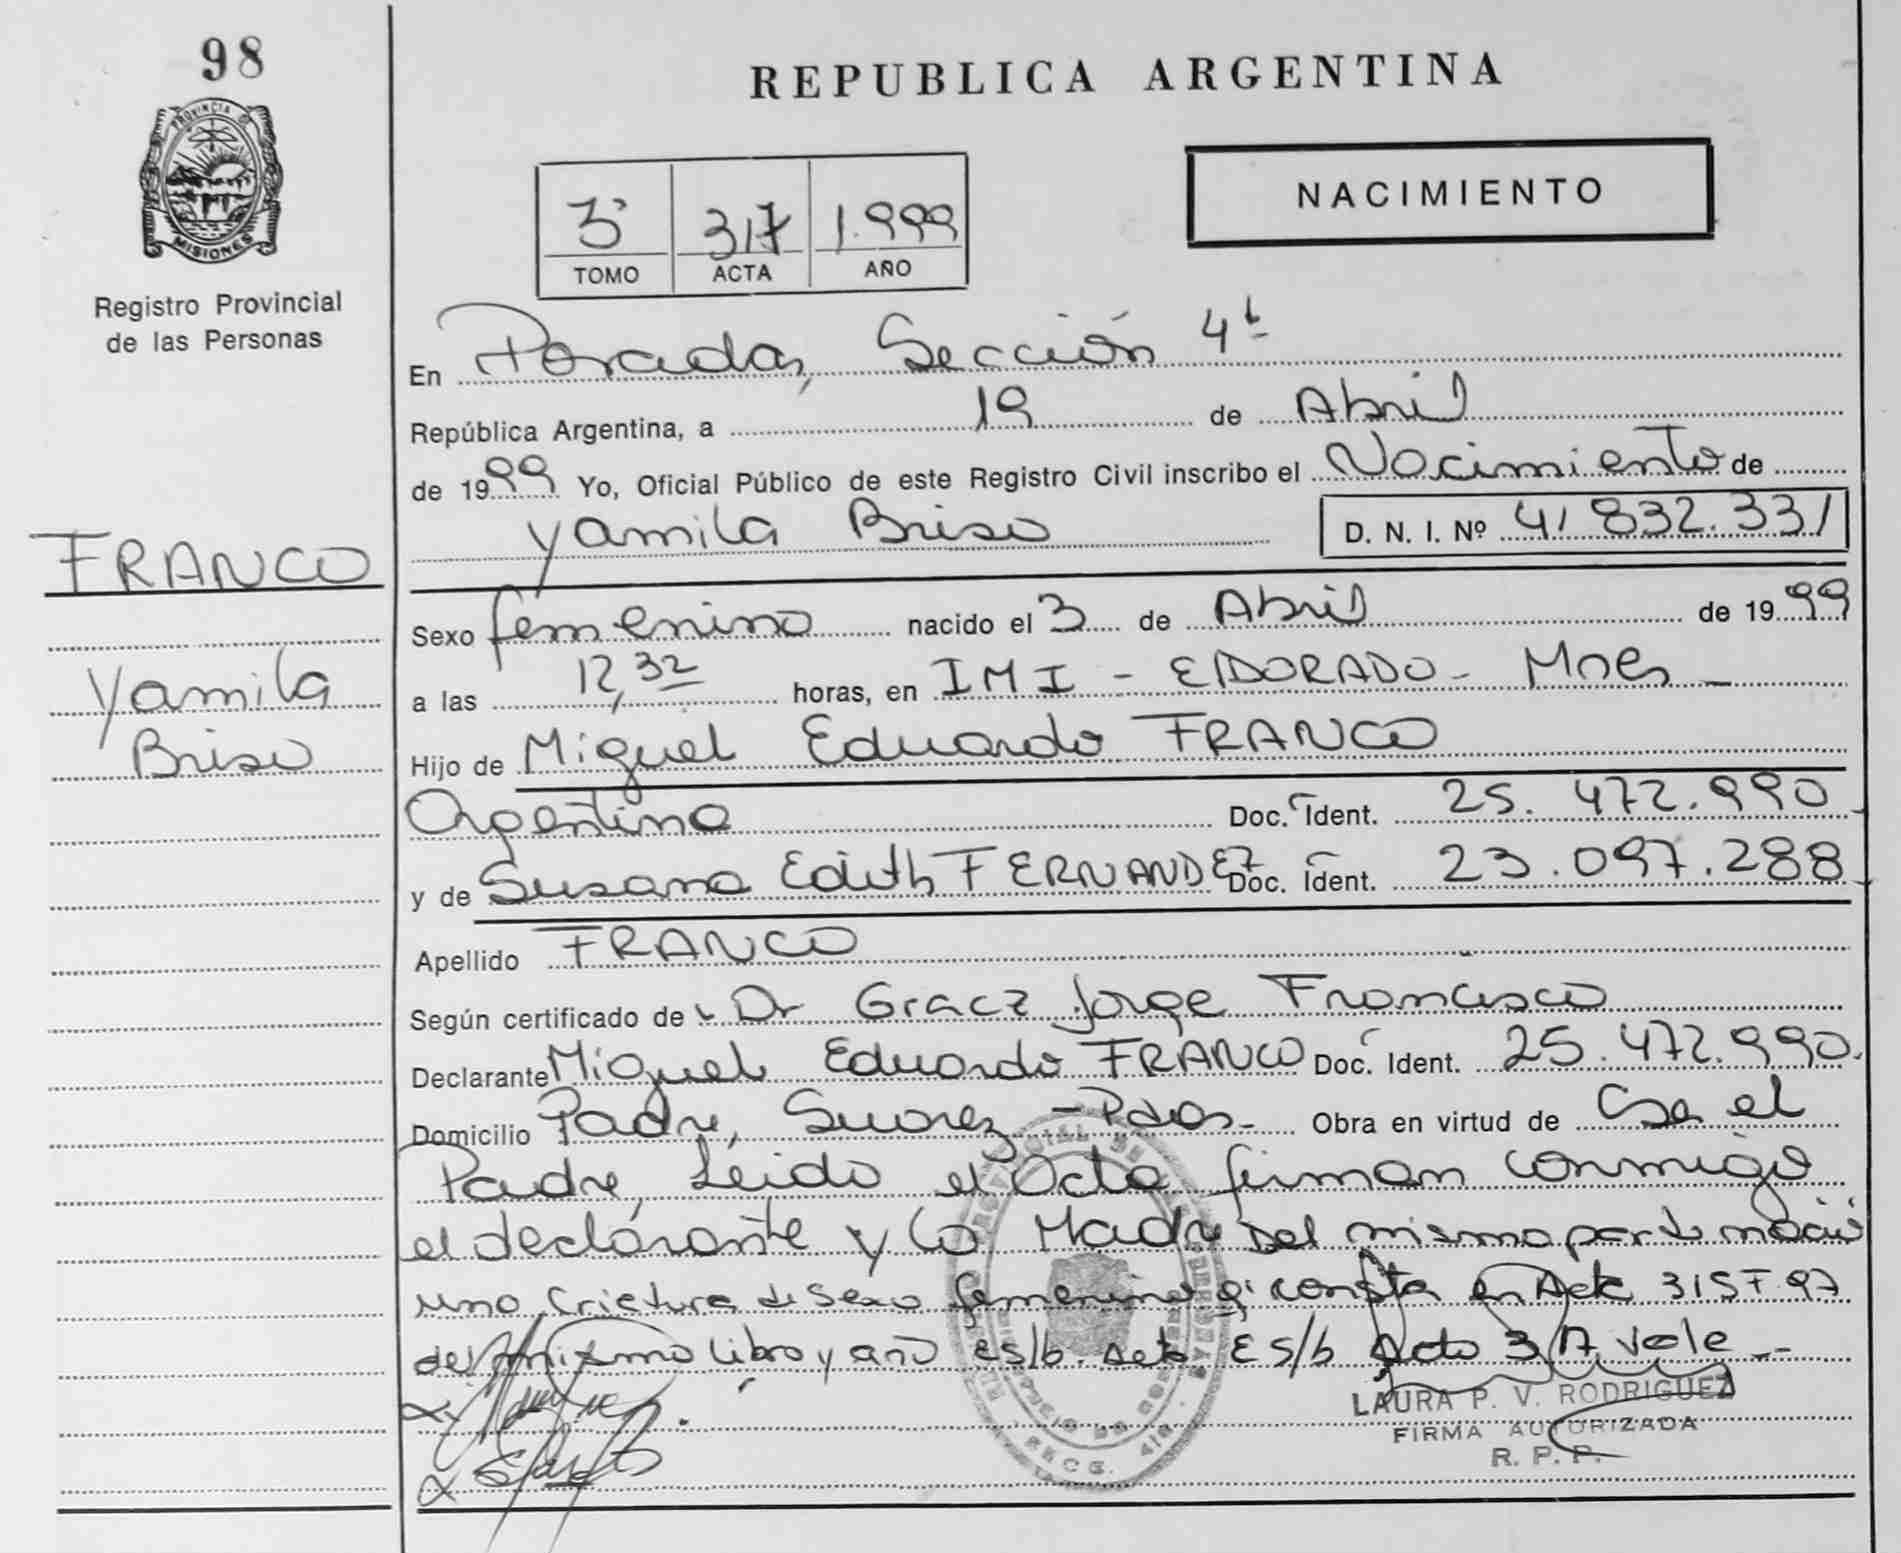 98
REPUBLICA ARGENTINA
PROVINCIA DE
MISIONES
Registro Provincial
de las Personas
NACIMIENTO
3° 317 1.999
TOMO ACTA AÑO
En Posadas, Sección 4ta
República Argentina, a 19 de Abril
de 1999 Yo, Oficial Público de este Registro Civil inscribo el Nacimiento de
Yamila Brisa D. N. I. Nº 41 832.331
FRANCO
Yamila
Brisa
Sexo femenino nacido el 3 de Abril de 1999
a las 12,32 horas, en IMI - ElDORADO - Mnes -
Hijo de Miguel Eduardo FRANCO
Argentina Doc. Ident. 25.472.990
y de Susana Edith FERNANDEZ Doc. Ident. 23.097.288
Apellido FRANCO
Según certificado de Dr Gracz Jorge Francisco
Declarante Miguel Eduardo FRANCO Doc. Ident. 25.472.990.
Domicilio Padre, Suarez - Pdas - Obra en virtud de Ser el
Padre, Leido el Acta firman conmigo
el declarante y la Madre Del mismo parto nació
una criatura de Sexo femenino q' consta en Acta 315 T 97
del mismo libro y año Es/b. Acta Es/b Acta 317 Vale --
LAURA P. V. RODRIGUEZ
FIRMA AUTORIZADA
R. P. P.